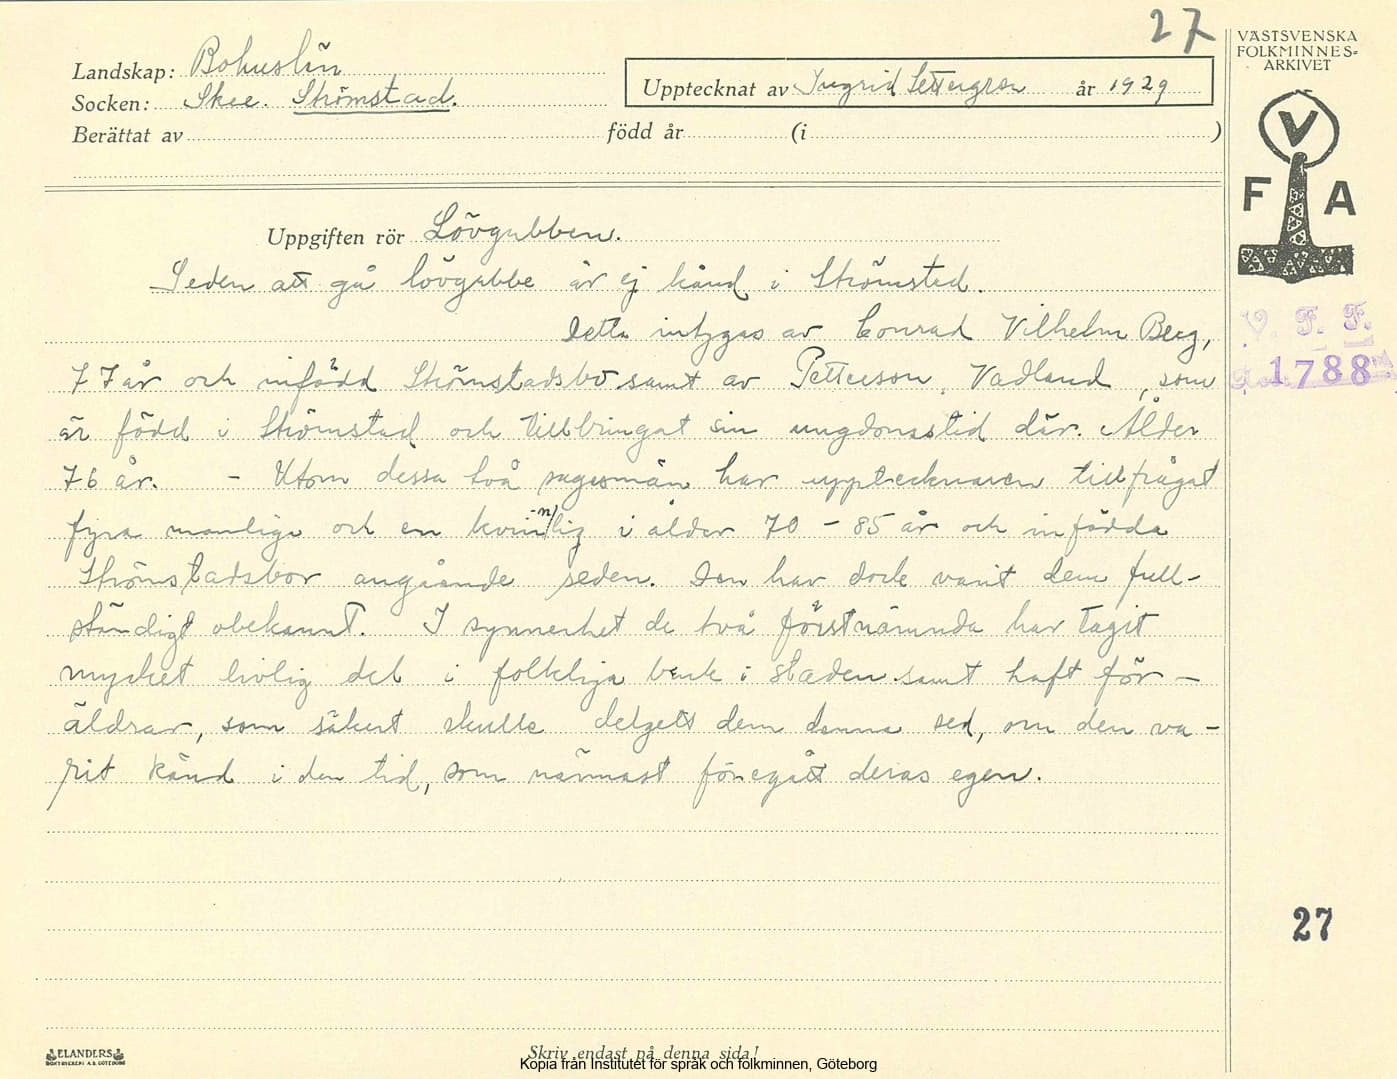 27
VÄSTSVENSKA
FOLKMINNES=
ARKIVET
Landskap: Bohuslän
Socken: Skee. Strömstad.
Upptecknat av Ingrid Settergren år 1929
Berättat av född år (i )
V
F A
Uppgiften rör Lövgubben.
Seden att gå lövgubbe är ej känd i Strömstad.
Detta intygas av Conrad Vilhelm Berg,
77 år och infödd Strömstadsbo samt av Petterson, Vadland, som
är född i Strömstad och tillbringat sin ungdomstid där. Ålder
76 år. - Utom dessa två sagesmän har upptecknaren tillfrågat
fyra manliga och en kvinnlig i ålder 70 - 85 år och infödda
Strömstadsbor angående seden. Den har dock varit dem full-
ständigt obekannt. I synnerhet de två förstnämnda har tagit
mycket livlig del i folkliga bruk i staden samt haft för-
äldrar, som säkert skulle delgett dem denna sed, om den va-
rit känd i den tid, som närmast föregått deras egen.
V. F. F.
1788
27
ELANDERS
BOKTRYCKERI A.B. GÖTEBORG
Skriv endast på denna sida!
Kopia från Institutet för språk och folkminnen, Göteborg